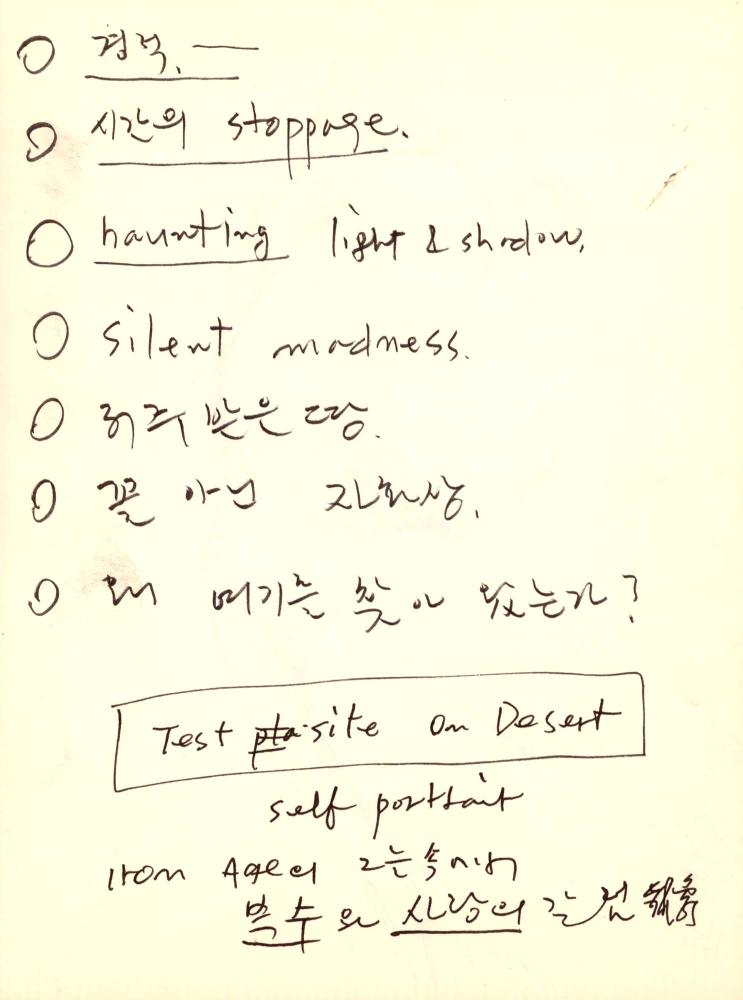 ○ 정적. —
○ 시간의 stoppage.
○ haunting light & shadow.
○ silent madness.
○ 저주 받은 땅.
○ 꼴 아닌 자화상.
○ 왜 여기를 찾아 왔는가?
Test site On Desert
self portrait
Iron Age의 그늘 속에서
복수와 사랑의